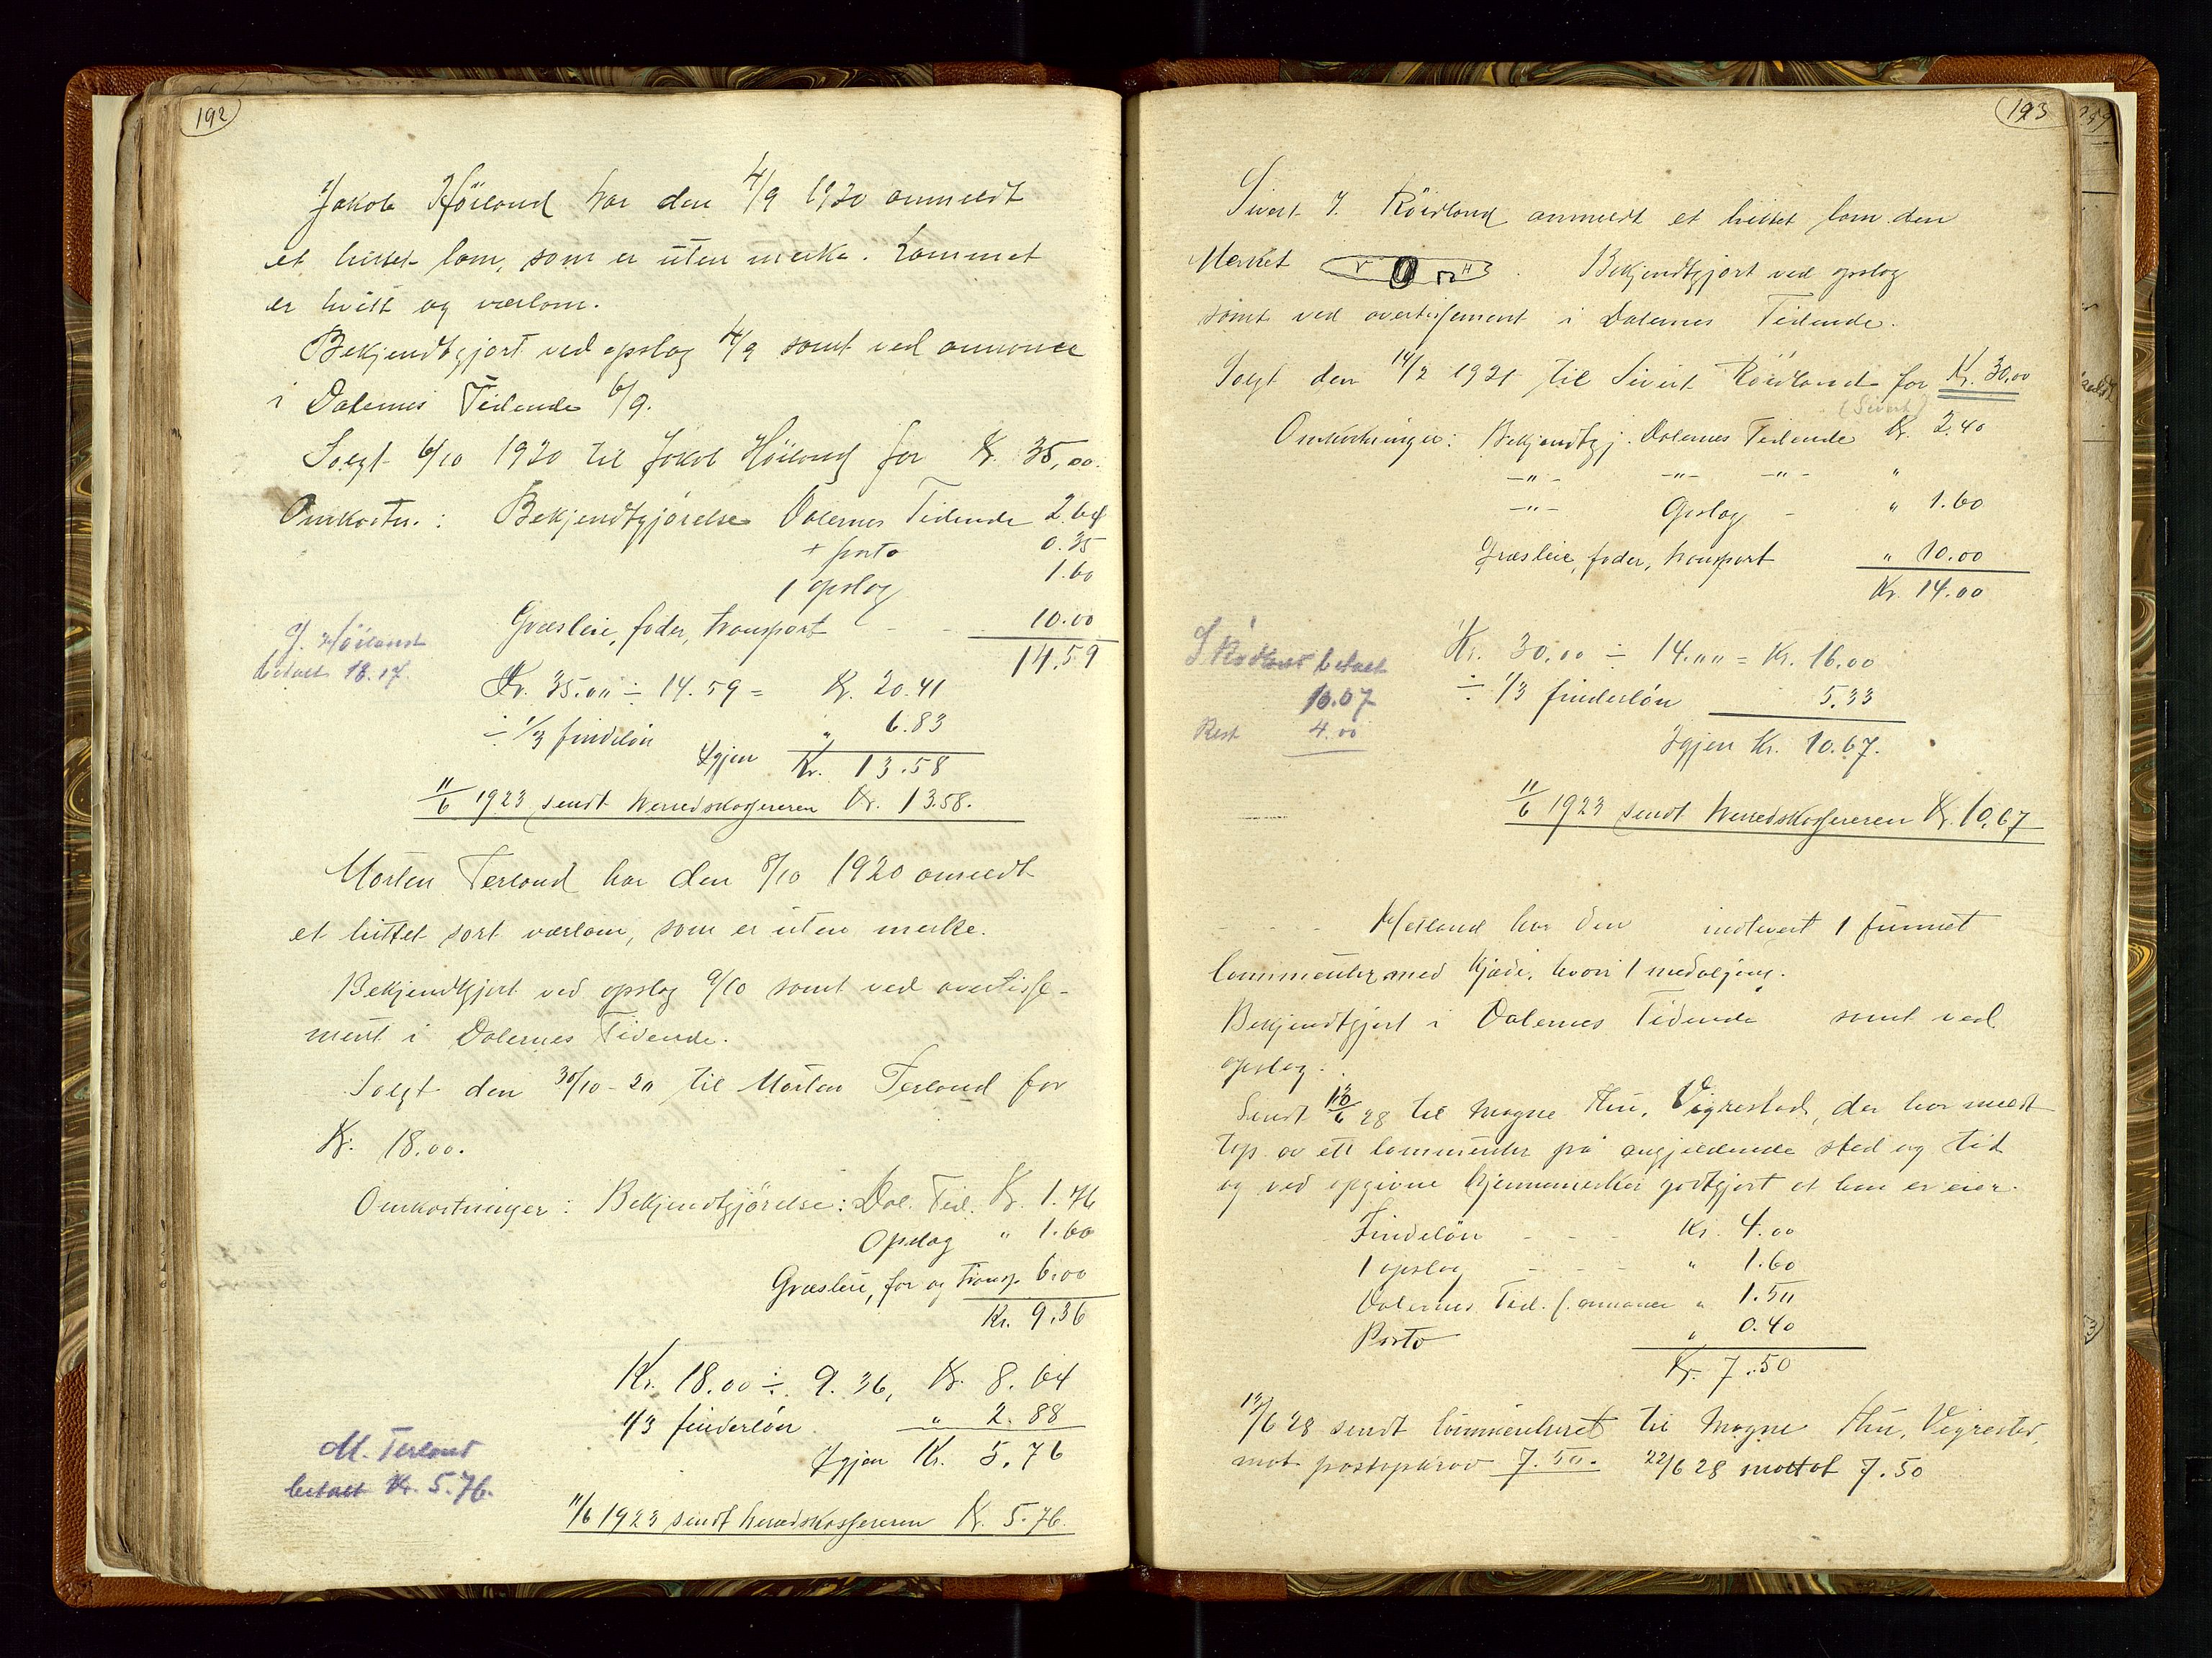 192
Jakob Höiland har den 4/9 1920 anmeldt
et hittet lam, som er uten merke. Lammet
er hvitt og værlam.
Bekjendtgjort ved opslag 4/9 samt ved annonce
i Dalernes Tidende 6/9.
Solgt 6/10 1920 til Jakob Höiland for Kr. 35,00.
Omkostn.: Bekjendtgjörelse Dalernes Tidende 2.64
+ porto 0.35
1 opslag 1.60
Græsleie, foder, transport - - 10.00
14.59
J. Höiland
betalt 18.17.
Kr. 35.00 ÷ 14.59 = Kr. 20.41
÷ 1/3 findelön " 6.83
Igjen Kr. 13.58
11/6 1923 sendt herredskassereren Kr. 13.58.
Morten Terland har den 8/10 1920 anmeldt
et hittet sort værlam, som er uten merke.
Bekjendtgjort ved opslag 9/10 samt ved avertisse-
ment i Dalernes Tidende.
Solgt den 30/10-20 til Morten Terland for
Kr. 18.00.
Omkostninger: Bekjendtgjörelse: Dal. Tid. Kr. 1.76
Opslag " 1.60
Græsleie, for og transp. 6.00
Kr. 9.36
Kr. 18.00 ÷ 9.36, Kr. 8.64
1/3 finderlön " 2.88
Igjen Kr. 5.76
M. Terland
betalt Kr. 5.76.
11/6 1923 sendt herredskassereren Kr. 5.76.
193
Sivert J. Röidland anmeldt et hittet lam den
Merket Bekjendtgjort ved opslag
samt ved avertissement i Dalernes Tidende.
Solgt den 14/2 1921 til Sivert Röidland for Kr. 30,00
(Sivert)
Omkostninger: Bekjendtgj. Dalernes Tidende Kr. 2.40
-"- -"- -"- "
-"- Opslag - " 1.60
Græsleie, foder, transport " 10.00
Kr. 14.00
Kr. 30.00 ÷ 14.00 = Kr. 16.00
÷ 1/3 finderlön 5.33
Igjen Kr. 10.67.
betalt
10.67
Rest 4.00
11/6 1923 sendt herredskassereren Kr. 10.67
- - - - Hetland har den indlevert 1 funnet
lommeuhr med kjæde, hvori 1 medaljong.
Bekjendtgjort i Dalernes Tidende samt ved
opslag.
Sendt 13/6 28 til Magne Thu, Vigrestad, der har meldt
tap av ett lommeuhr på angjeldende sted og tid
og ved opgivne kjennemerker godtgjort at han er eier.
Findelön - - - Kr. 4.00
1 opslag - - - " 1.60
Dalernes Tid. f. annonce " 1.50
Porto " 0.40
Kr. 7.50
13/6 28 sendt lommeuhret til Magne Thu, Vigrestad,
mot postopkrav 7.50. 22/6 28 mottat 7.50